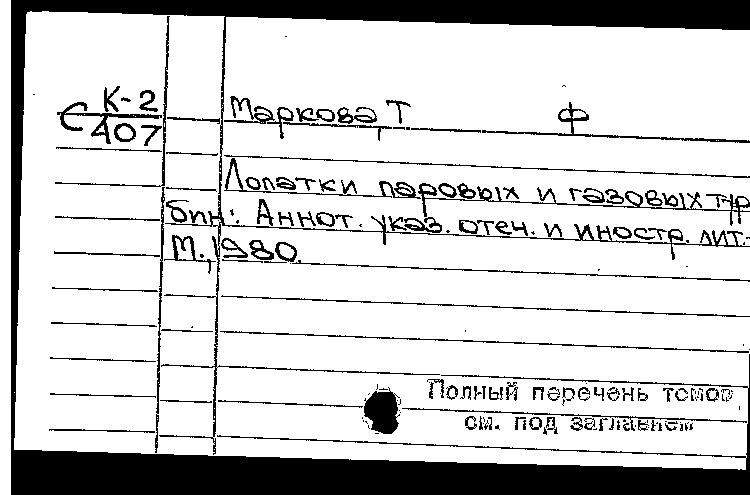 С К-2/407
Маркова, Т Ф
Лопатки паровых и газовых тур
бин: Аннот. указ. отеч. и иностр. лит.-
М., 1980.
Полный перечень томов
см. под заглавием